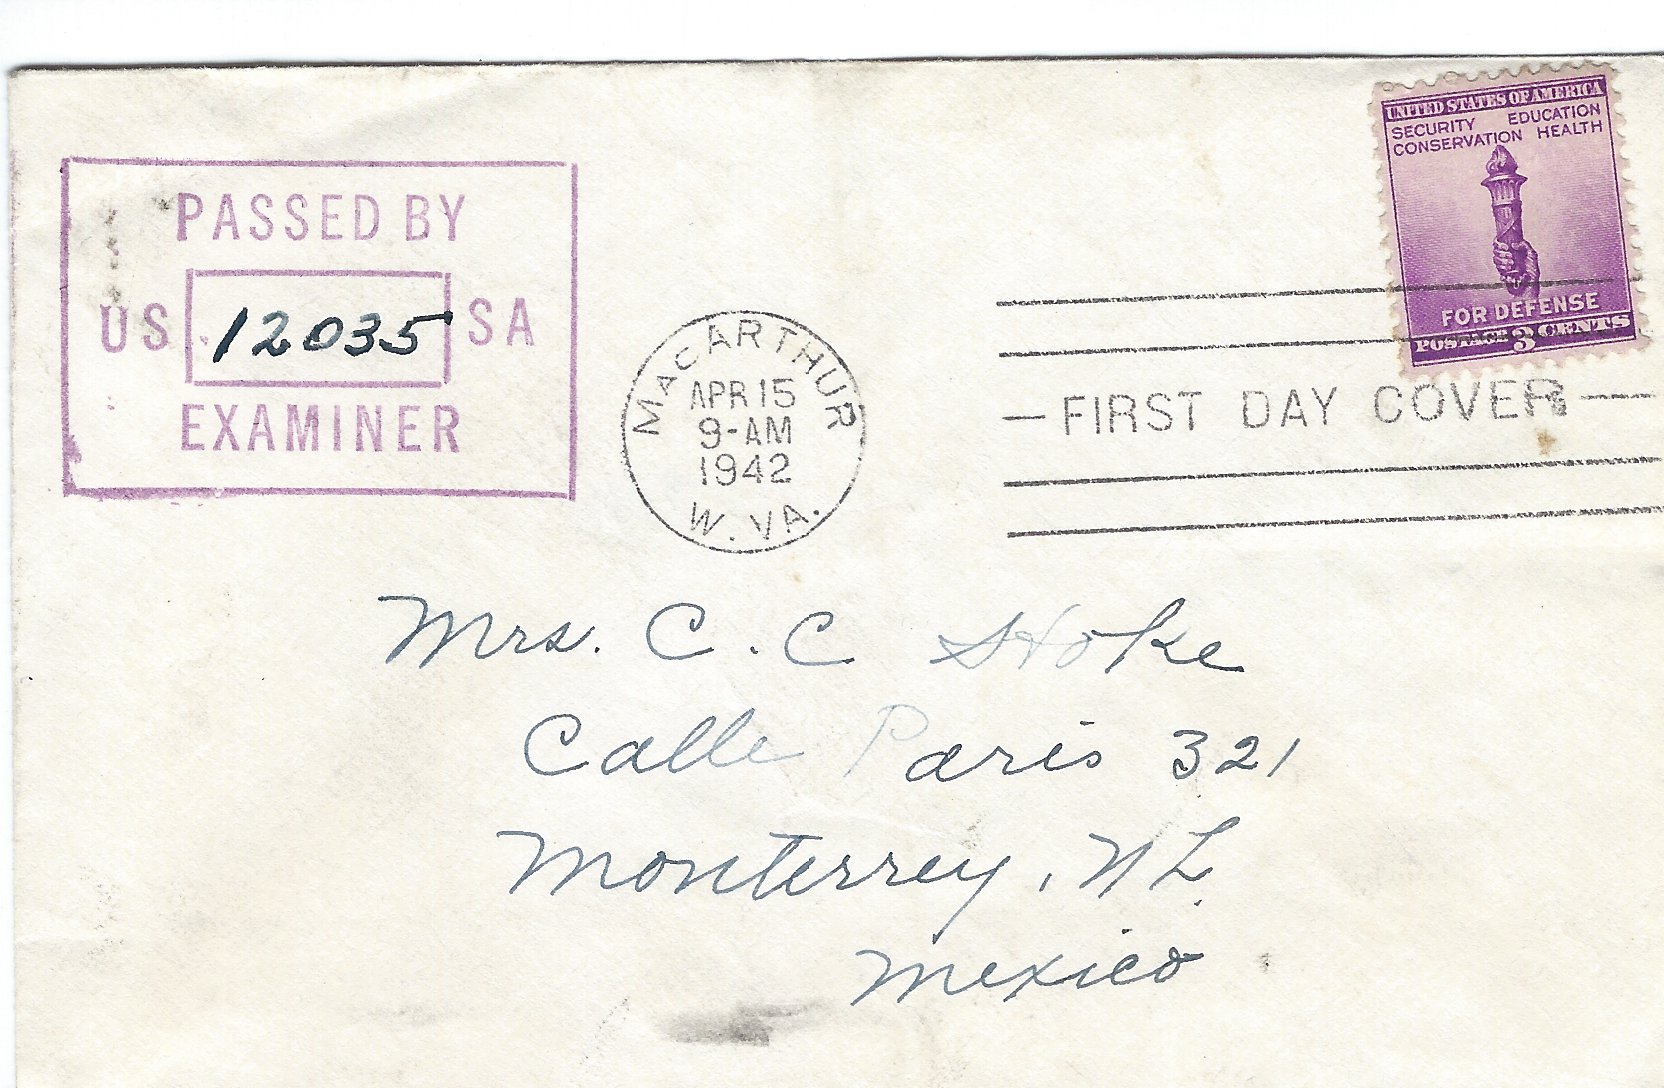 PASSED BY
US 12035 SA
EXAMINER
MACARTHUR
APR 15
9-AM
1942
W. VA.
UNITED STATES OF AMERICA
SECURITY EDUCATION
CONSERVATION HEALTH
FOR DEFENSE
POSTAGE 3 CENTS
FIRST DAY COVER
Mrs. C. C Stoke
Calle Paris 321
Monterrey, N L.
Mexico